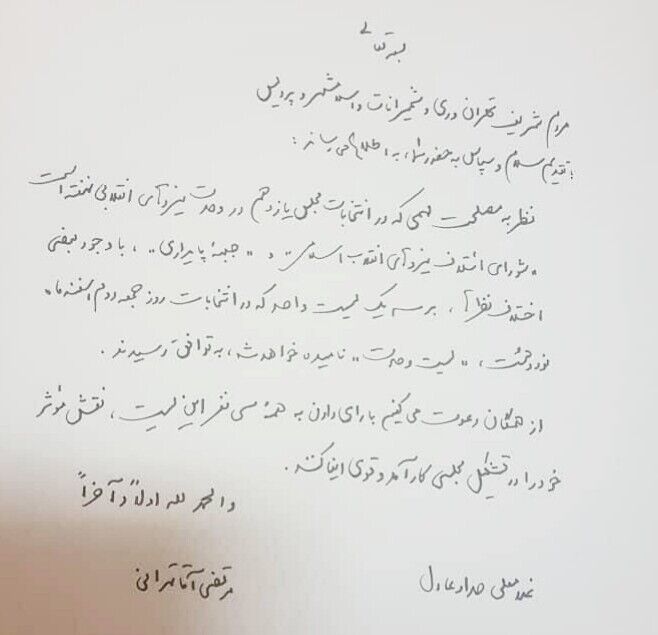 بسمه تعالی
مردم شریف تهران و ری و شمیرانات و اسلامشهر و پردیس
با تقدیم سلام و سپاس به حضور شما، به اطلاع می رساند:
نظر به مصلحت مهمی که در انتخابات مجلس یازدهم در وحدت نیروهای انقلابی نهفته است
«شورای ائتلاف نیروهای انقلاب اسلامی» و «جبههٔ پایداری»، با وجود بعضی
اختلاف نظرها، بر سر یک لیست واحد که در انتخابات روز جمعه دوم اسفندماه
نود و هشت، «لیست وحدت» نامیده خواهد شد، به توافق رسیدند.
از همگان دعوت می کنیم با رای دادن به همهٔ سی نفر این لیست، نقش مؤثر
خود را در تشکیل مجلسی کارآمد و قوی ایفا کنند.
والحمد لله اولاً و آخراً
غلامعلی حدادعادل
مرتضی آقاتهرانی